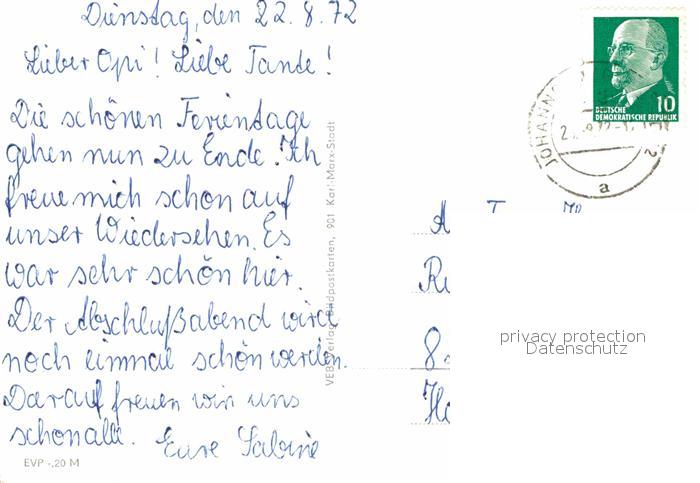 Dienstag, den 22.8.72
Lieber Opi! Liebe Tante!
Die schönen Ferientage
gehen nun zu Ende. Ich
freue mich schon auf
unser Wiedersehen. Es
war sehr schön hier.
Der Abschlußabend wird
noch einmal schön werden.
Darauf freuen wir uns
schon alle. Eure Sabine
EVP -,20 M
VEB Verlag Bildpostkarten, 901 Karl-Marx-Stadt
10
DEUTSCHE
DEMOKRATISCHE REPUBLIK
a
privacy protection
Datenschutz